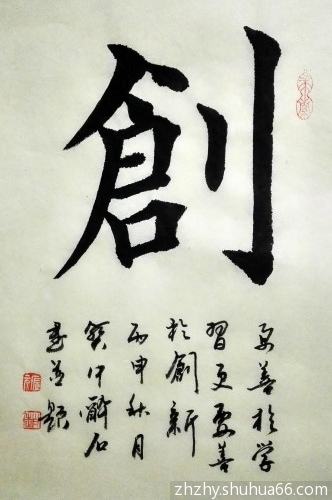 創
要善於学
習更要善
於創新
丙申秋月
石
題
zhzhyshuhua66.com